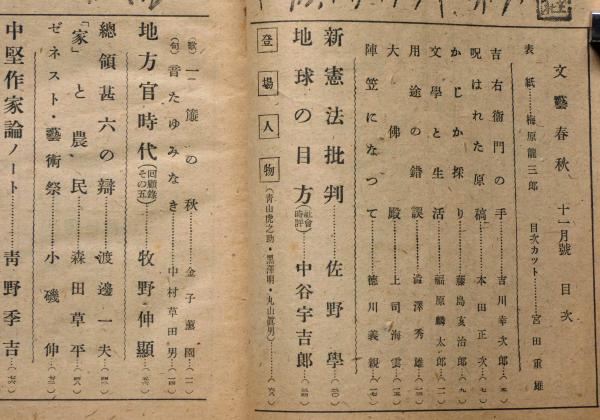 文藝春秋 十一月號 目次
表紙……梅原龍三郎 目次カット……宮田重雄
吉右衞門の手……吉川幸次郎
呪はれた原稿……本田正次
かじか採り……藤島亥治郎
文學と生活……福原麟太郎
用途の錯誤……澁澤秀雄
大佛殿……上司海雲
陣笠になつて……德川義親
新憲法批判……佐野學
地球の目方(社會時評)……中谷宇吉郎
登場人物(靑山虎之助・黑澤明・丸山眞男)
(歌)一簾の秋……金子薰園
(句)音たゆみなき……中村草田男
地方官時代(回顧錄その五)……牧野伸顯
總領甚六の辯……渡邊一夫
「家」と農民……森田草平
ゼネスト・藝術祭……小磯伸
中堅作家論ノート……靑野季吉